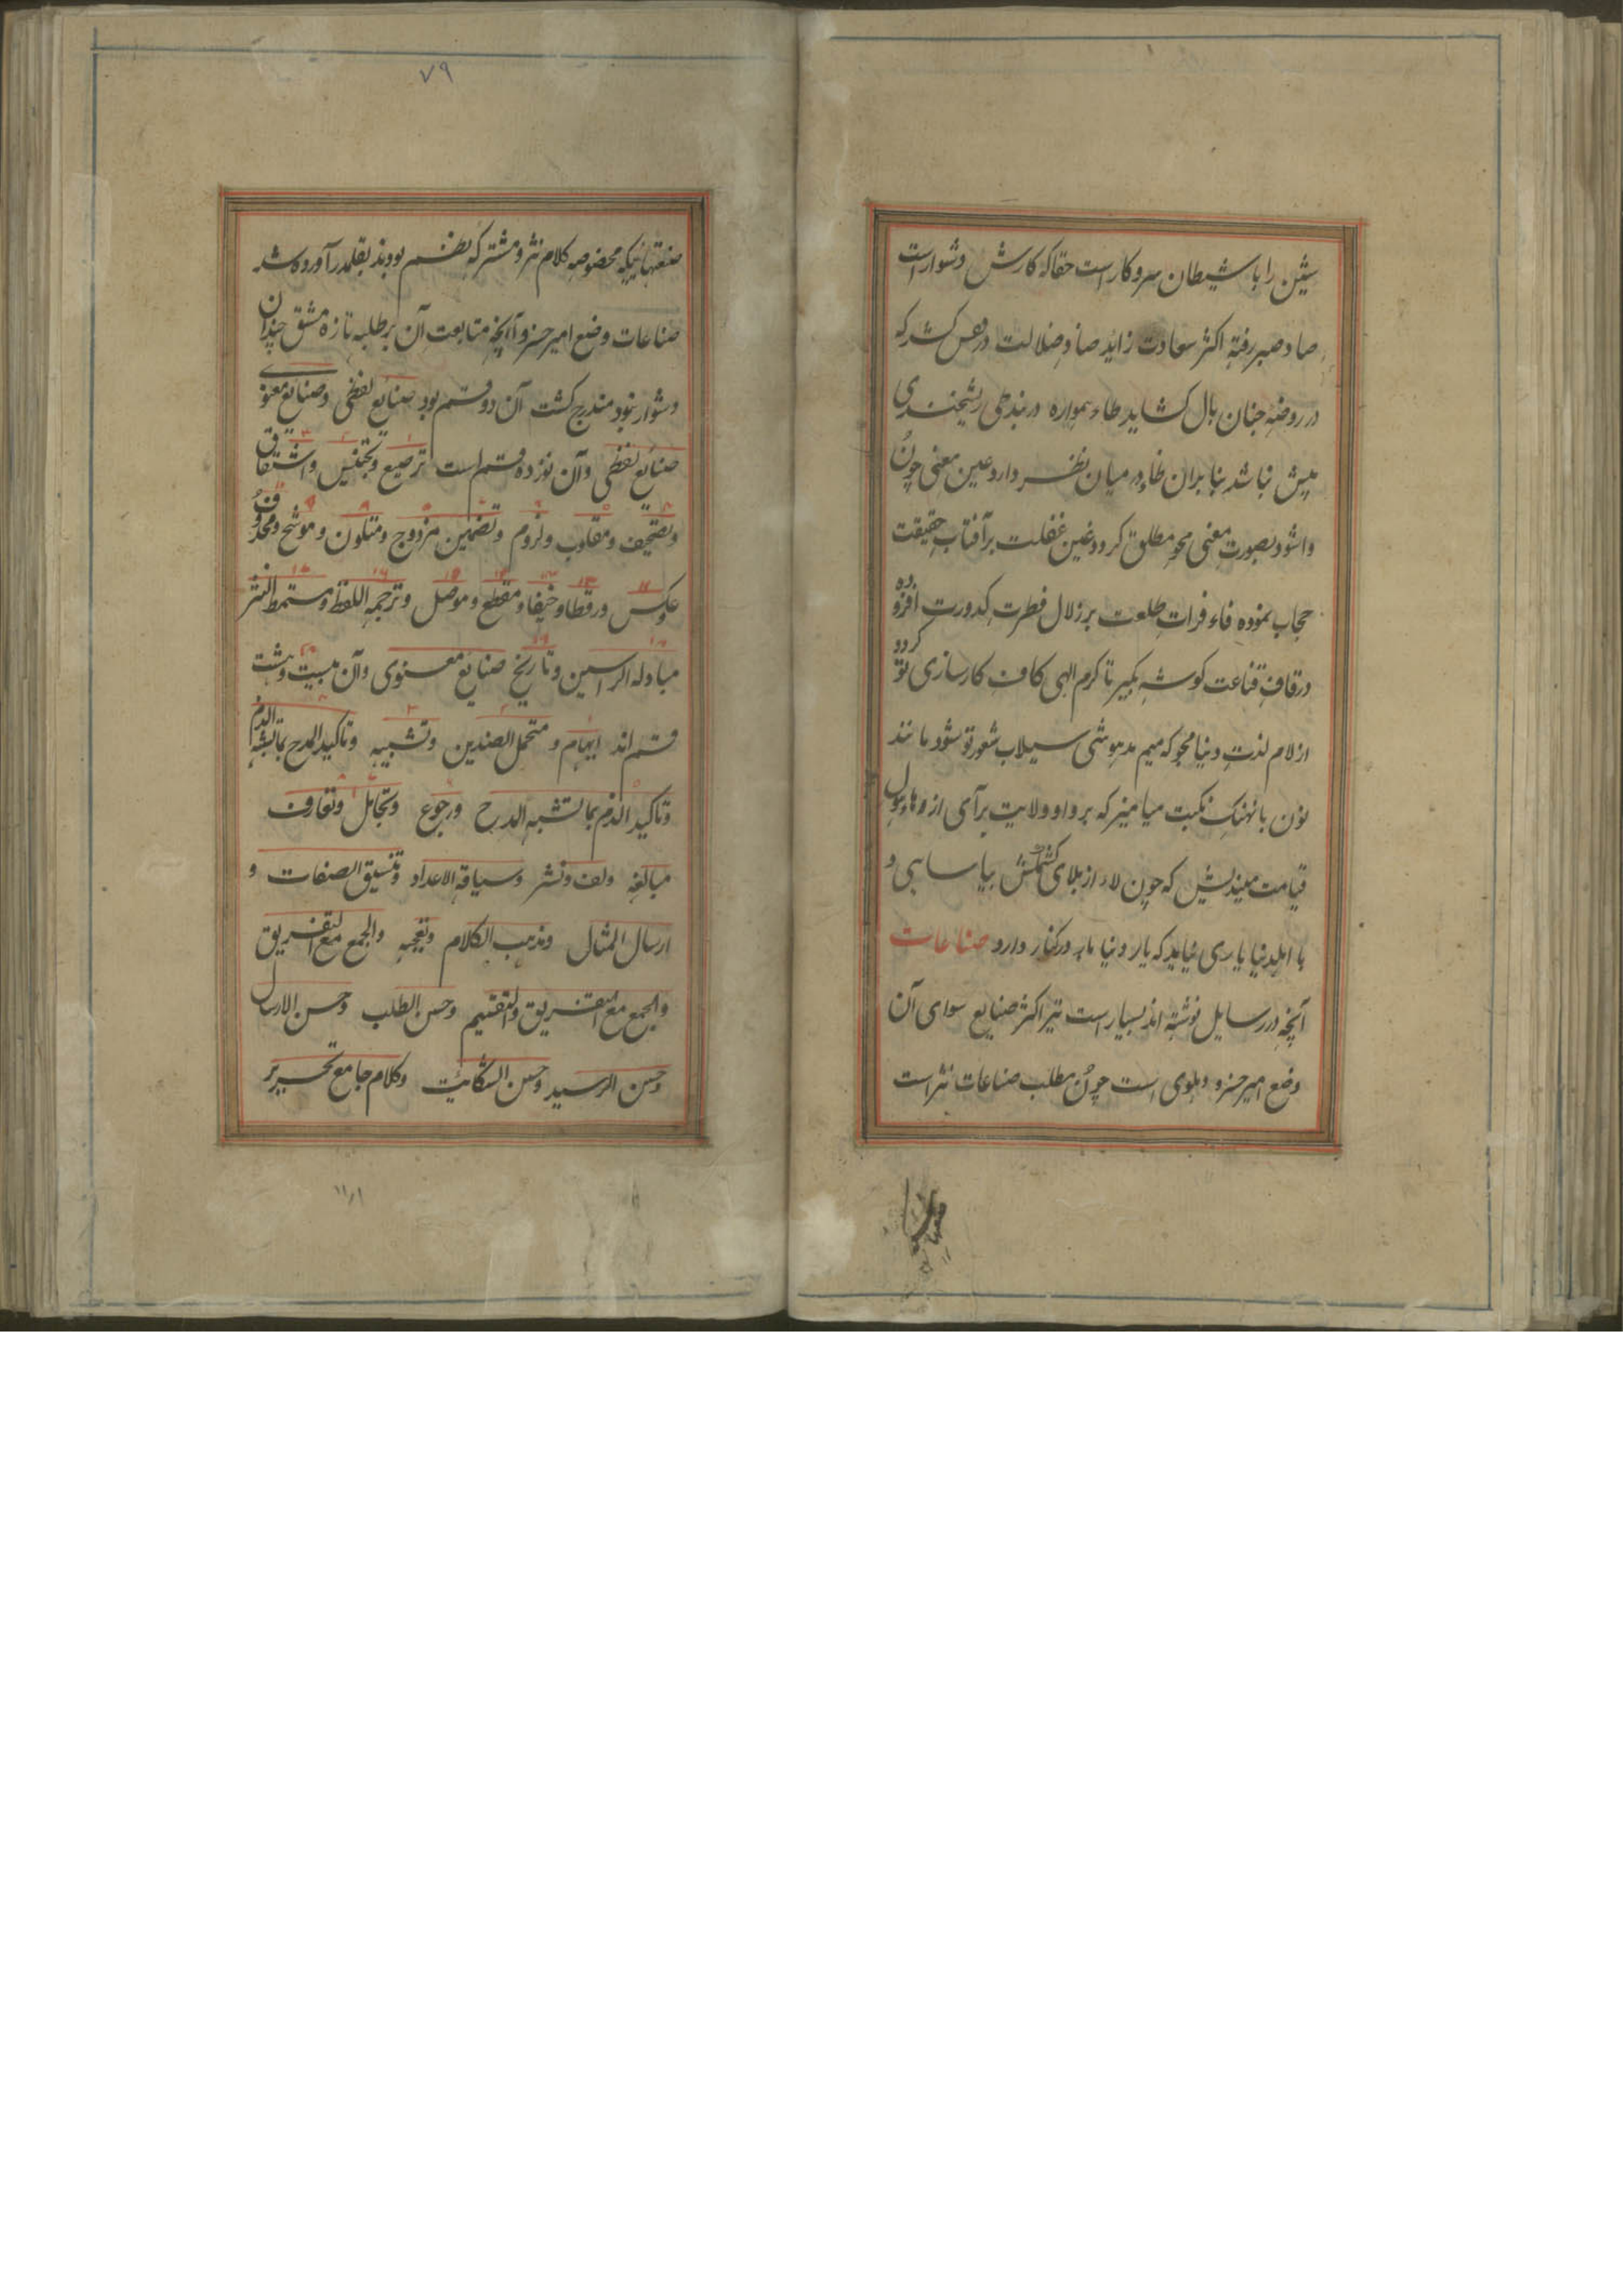 شین را با شیطان سروکار است حقا که کارش دشوار است
صاد صبر رفته اکثر سعادت زاید ضاد ضلالت در قفس کشد که
در روضه جنان بال کشاید طاء همواره در بند طی ریشخندی
پیش نباشد بنا بران ظاء در میان نظر دارد عین معنی چون
واشود بصورت معنی محو مطلق کردد غین غفلت بر آفتاب حقیقت
حجاب نموده فاء فرات طلعت بر زلال فطرت کدورت افزوده
در قاف قناعت کوشه بکیر تا کرم الهی کاف کارسازی تو کردد
از لام لذت دنیا مجو که میم مدهوشی سیلاب شعور تو شود مانند
نون با نهنک نکبت میامیز که بر واو ولایت برآی از وهاء هول
قیامت میندیش که چون لاء از بلای کشمکش بیاسایی و
با اهل دنیا یاری نیاید که یار دنیا مار در کنار دارد صناعات
آنچه در رسایل نوشته اند بسیار است نیز اکثر صنایع سوای آن
وضع امیر خسرو دهلوی است چون مطلب صناعات نثر است
۷۹
صنعتهائیکه مخصوصه کلام نثر و مشترکه بنظم بودند بقلم در آورده شد
صناعات وضع امیر خسرو آنچه متابعت آن بر طلبه تازه مشق چندان
دشوار نبود مندرج کشت آن دو قسم بود صنایع لفظی و صنایع معنوی
صنایع لفظی وآن نوزده قسم است ترصیع وتجنیس واشتقاق
وتصحیف ومقلوب ولزوم وتضمین مزدوج ومتلون وموشح ومحذوف
وعکس ورقطا وخیفا ومقطع وموصل وترجمة اللفظ ومسمط النثر
مبادلة الراسین وتاریخ صنایع معنوی وآن بیست وهشت
قسم اند ایهام و محتمل الضدین وتشبیه وتاکید المدح بما یشبه الذم
وتاکید الذم بما یشبه المدح ورجوع وتجاهل وتعارف
مبالغه ولف ونشر وسیاقة الاعداد وتنسیق الصفات و
ارسال المثال ومذهب الکلام وتعجبه والجمع مع التفریق
والجمع مع التفریق والتقسیم وحسن الطلب وحسن الارسال
وحسن الرسید وحسن الشکایت وکلام جامع تحریر
۱۱۸۱